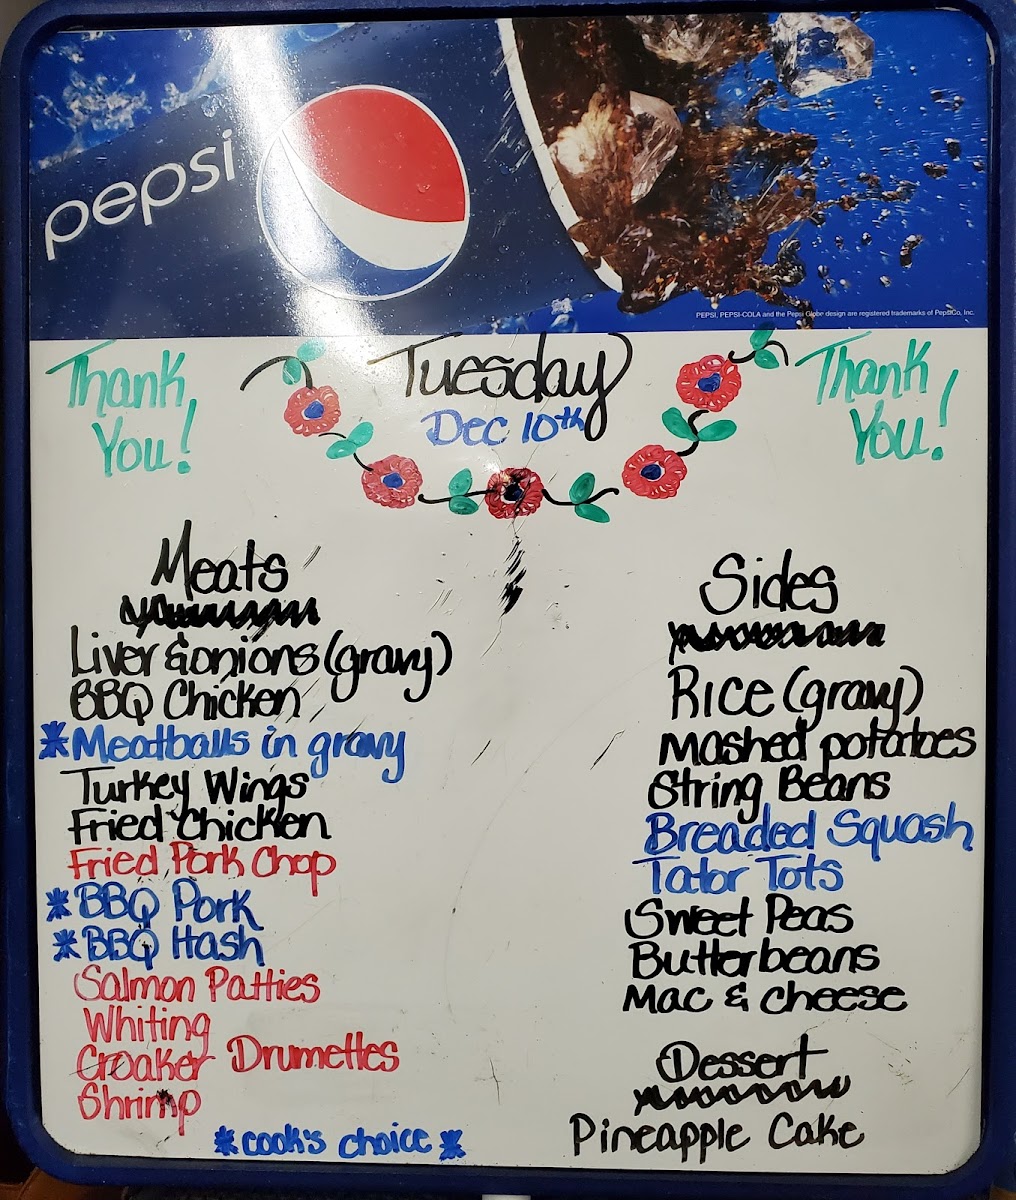 pepsi
PEPSI, PEPSI-COLA and the Pepsi Globe design are registered trademarks of PepsiCo, Inc.
Thank
You!
Tuesday
Dec 10th
Thank
You!
Meats
Liver & onions (gravy)
BBQ Chicken
*Meatballs in gravy
Turkey Wings
Fried Chicken
Fried Pork Chop
*BBQ Pork
*BBQ Hash
Salmon Patties
Whiting
Croaker Drumettes
Shrimp
*cook's choice*
Sides
Rice (gravy)
Mashed potatoes
String Beans
Breaded Squash
Tator Tots
Sweet Peas
Butterbeans
Mac & cheese
Dessert
Pineapple Cake